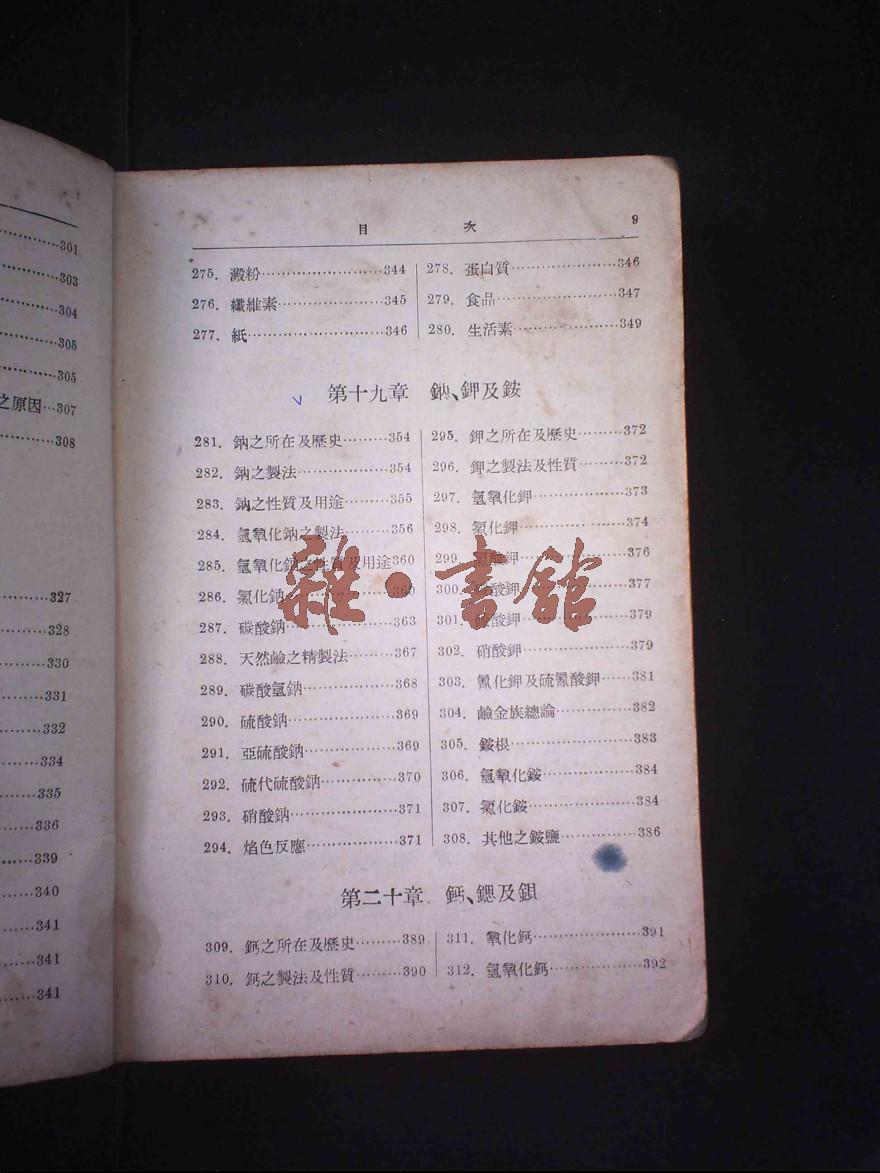 301
303
304
305
305
之原因…307
308
327
328
330
331
332
334
335
336
339
340
341
341
341
目 次 9
275. 澱粉……344
276. 纖維素……345
277. 紙……346
278. 蛋白質……346
279. 食品……347
280. 生活素……349
第十九章 鈉、鉀及銨
281. 鈉之所在及歷史……354
282. 鈉之製法……354
283. 鈉之性質及用途……355
284. 氫氧化鈉之製法……356
285. 氫氧化鈉之性質及用途360
286. 氯化鈉……
287. 碳酸鈉……363
288. 天然鹼之精製法……367
289. 碳酸氫鈉……368
290. 硫酸鈉……369
291. 亞硫酸鈉……369
292. 硫代硫酸鈉……370
293. 硝酸鈉……371
294. 焰色反應……371
295. 鉀之所在及歷史……372
296. 鉀之製法及性質……372
297. 氫氧化鉀……373
298. 氯化鉀……374
299. 酸鉀……376
300. 酸鉀……377
301. 酸鉀……379
302. 硝酸鉀……379
303. 氰化鉀及硫氰酸鉀……381
304. 鹼金族總論……382
305. 銨根……383
306. 氫氧化銨……384
307. 氯化銨……384
308. 其他之銨鹽……386
第二十章 鈣、鍶及鋇
309. 鈣之所在及歷史……389
310. 鈣之製法及性質……390
311. 氧化鈣……391
312. 氫氧化鈣……392
雜·書館